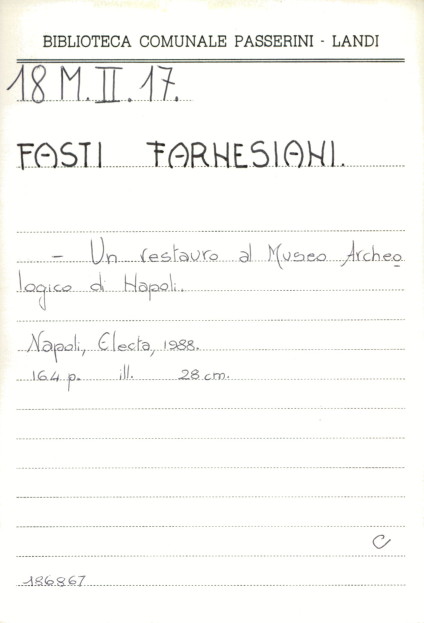 BIBLIOTECA COMUNALE PASSERINI - LANDI
18 M. II. 17.
FASTI FARNESIANI.
- Un restauro al Museo Archeo
logico di Napoli.
Napoli, Electa, 1988.
164 p. ill. 28 cm.
C
186867